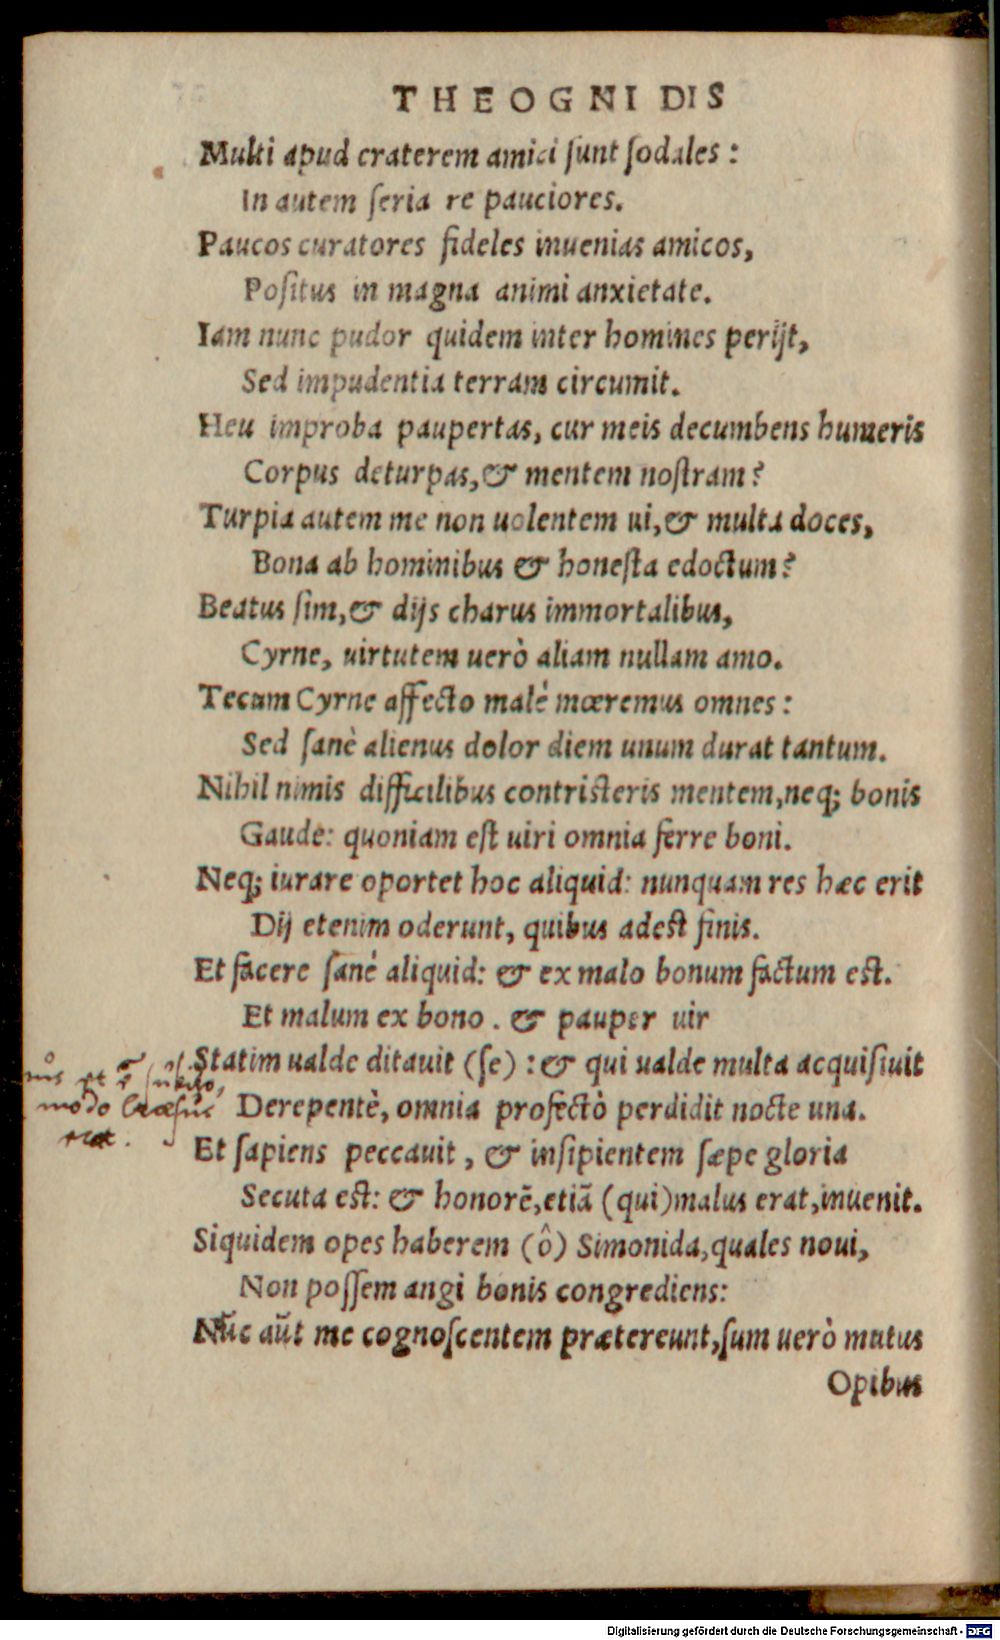 THEOGNIDIS
Multi apud craterem amici sunt sodales :
In autem seria re pauciores.
Paucos curatores fideles inuenias amicos,
Positus in magna animi anxietate.
Iam nunc pudor quidem inter homines perijt,
Sed impudentia terram circumit.
Heu improba paupertas, cur meis decumbens humeris
Corpus deturpas,& mentem nostram?
Turpia autem me non uolentem ui,& multa doces,
Bona ab hominibus & honesta edoctum?
Beatus sim,& dijs charus immortalibus,
Cyrne, uirtutem uerò aliam nullam amo.
Tecum Cyrne affecto malè mœremus omnes :
Sed sanè alienus dolor diem unum durat tantum.
Nihil nimis difficilibus contristeris mentem,neq; bonis
Gaude: quoniam est uiri omnia ferre boni.
Neq; iurare oportet hoc aliquid: nunquam res hæc erit
Dij etenim oderunt, quibus adest finis.
Et facere sanè aliquid: & ex malo bonum factum est.
Et malum ex bono . & pauper uir
Statim ualde ditauit (se) : & qui ualde multa acquisiuit
Derepentè, omnia profectò perdidit nocte una.
Et sapiens peccauit , & insipientem sæpe gloria
Secuta est: & honorē,etiā (qui)malus erat,inuenit.
Siquidem opes haberem (ô) Simonida,quales noui,
Non possem angi bonis congrediens:
Nūc aūt me cognoscentem prætereunt,sum uerò mutus
Opibus
modo
Digitalisierung gefördert durch die Deutsche Forschungsgemeinschaft - DFG